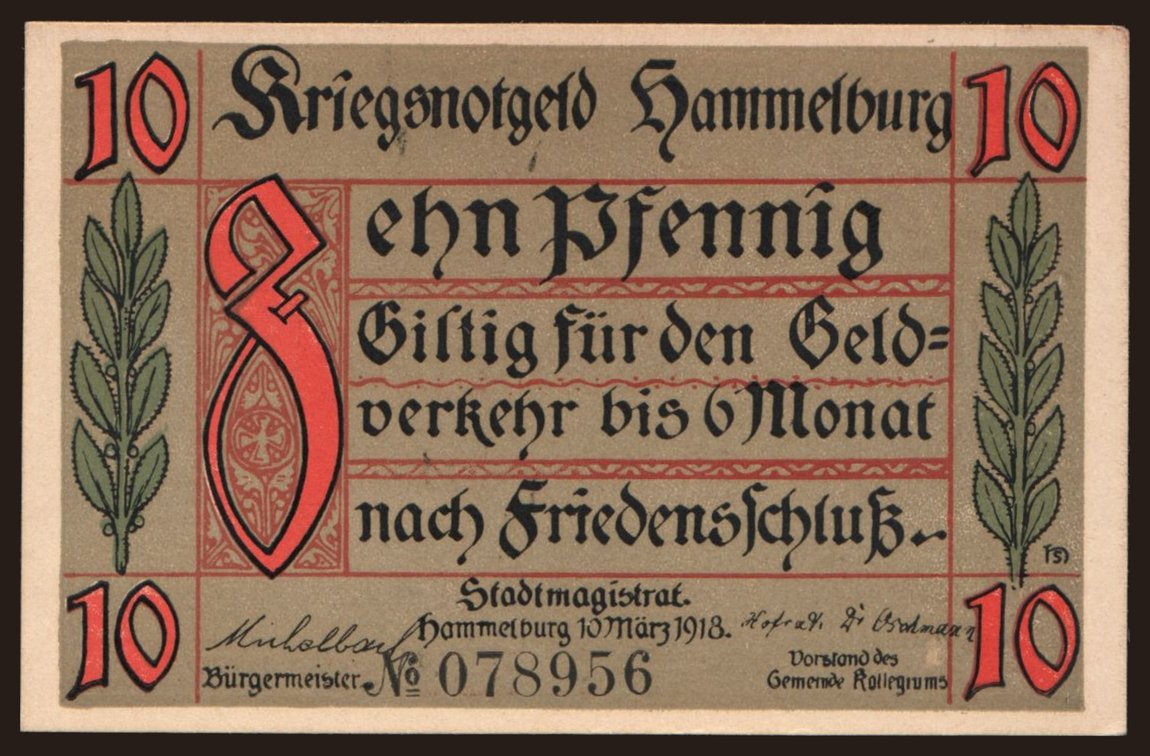 10 Kriegsnotgeld Hammelburg 10
Zehn Pfennig
Giltig für den Geld=
verkehr bis 6 Monat
nach Friedensschluß.
FS
10 Stadtmagistrat. 10
Michelbach Hammelburg 10 März 1918. Hofrat Dr
Bürgermeister. No 078956 Vorstand des
Gemeinde Kollegiums